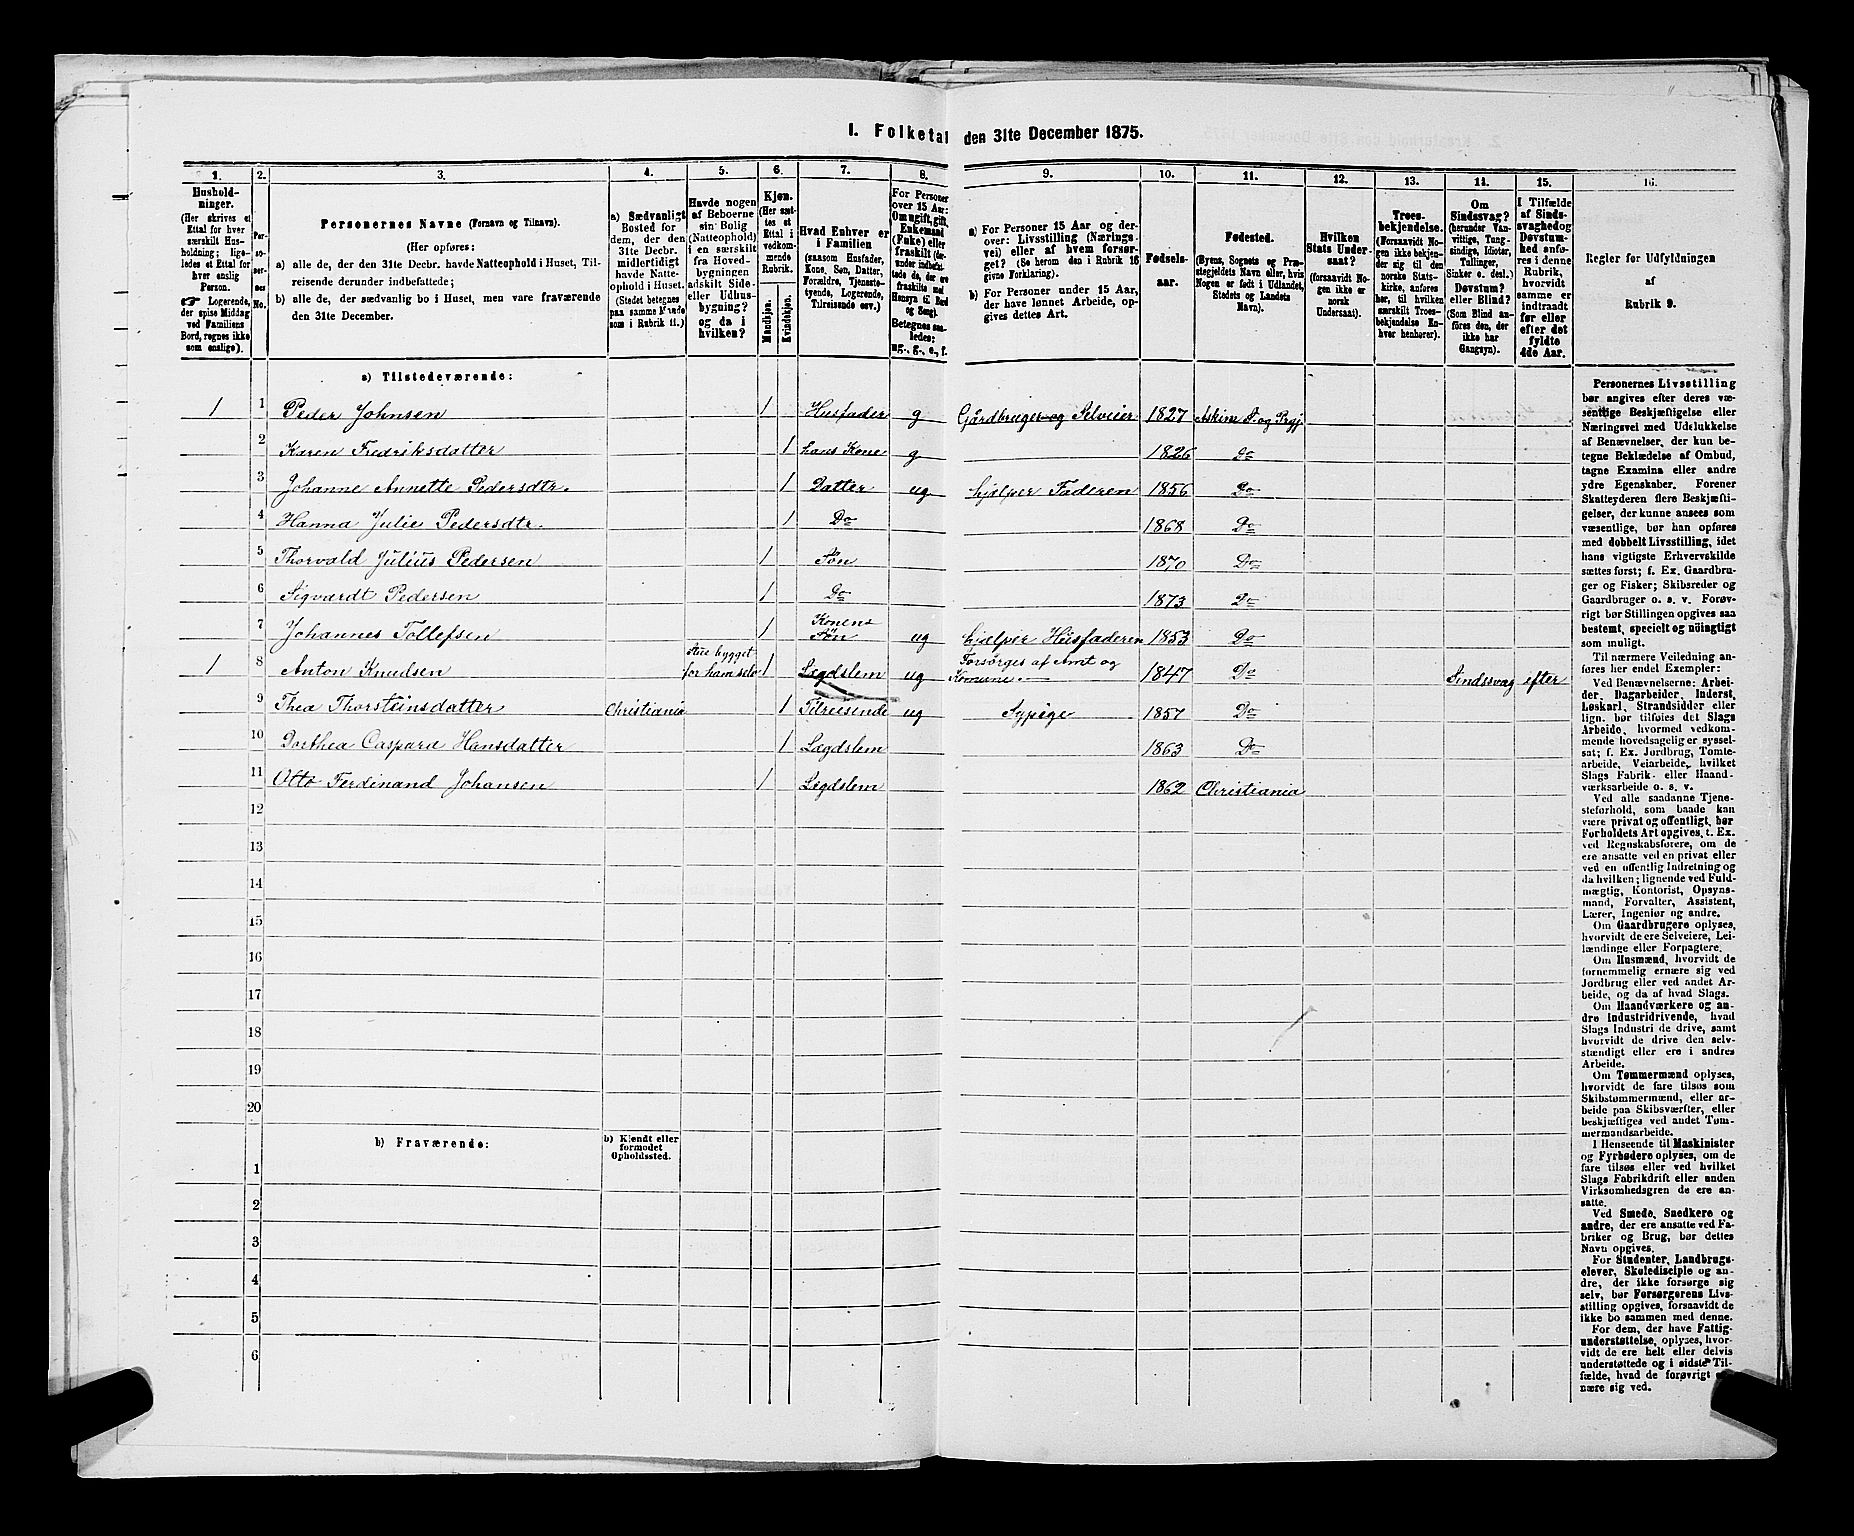 1. Folketal den 31te December 1875.
1. 2. 3. 4. 5. 6. 7. 8. 9. 10. 11. 12. 13. 14. 15. 16.
Hushold-
ninger.
(Her skrives et
Ettal for hver
særskilt Hus-
holdning; lige-
ledes et Ettal for
hver enslig
Person.
☞ Logerende,
der spise Middag
ved Familiens
Bord, regnes ikke
som enslige).
Per-
so-
ner-
nes
No.
Personernes Navne (Fornavn og Tilnavn).
(Her opføres:
a) alle de, der den 31te Decbr. havde Natteophold i Huset, Til-
reisende derunder indbefattede;
b) alle de, der sædvanlig bo i Huset, men vare fraværende
den 31te December.
a) Sædvanligt
Bosted for
dem, der den
31te Decbr.
midlertidigt
havde Natte-
ophold i Huset.
(Stedet betegnes
paa samme Maade
som i Rubrik 11.)
Havde nogen
af Beboerne
sin Bolig
(Natteophold)
i en særskilt
fra Hoved-
bygningen
adskilt Side-
eller Udhus-
bygning?
og da i
hvilken?
Kjøn.
(Her sæt-
tes et
Ettal i
vedkom-
mende
Rubrik.
Mandkjøn.
Kvindekjøn.
Hvad Enhver er
i Familien
(saasom Husfader,
Kone, Søn, Datter,
Forældre, Tjeneste-
tyende, Logerende,
Tilreisende osv.)
For Personer
over 15 Aar:
Om ugift, gift,
Enkemand
(Enke) eller
fraskilt
Betegnes saa-
ledes:
ug., g., e., f.
a) For Personer 15 Aar og der-
over: Livsstilling (Nærings-
vei) eller af hvem forsør-
get? (Se herom den i Rubrik 16
givne Forklaring).
b) For Personer under 15 Aar,
der have lønnet Arbeide, op-
gives dettes Art.
Fødsels-
aar.
Fødested.
(Byens, Sognets og Præ-
stegjeldets Navn eller, hvis
Nogen er født i Udlandet,
Stedets og Landets
Navn).
Hvilken
Stats Under-
saat?
(forsaavidt No-
gen ikke er
norsk
Undersaat).
Troes-
bekjendelse.
(Forsaavidt No-
gen ikke bekjen-
der sig til den
norske Stats-
kirke, anføres
her, til hvilken
særskilt Troes-
bekjendelse En-
hver henhører).
Om
Sindssvag?
(herunder Van-
vittige, Tung-
sindige, Idioter,
Tullinger,
Sinker o. desl.)
Døvstum?
eller Blind?
(Som Blind an-
føres den, der
ikke har
Gangsyn).
I Tilfælde
af Sinds-
svaghed og
Døvstum-
hed anfø-
res i denne
Rubrik,
hvorvidt
samme er
indtraadt
før eller
efter det
fyldte
4de Aar.
Regler for Udfyldningen
af
Rubrik 9.
a) Tilstedeværende:
1 1 Peder Johnsen 1 Husfader g Gårdbruger og Selveier 1827 Askim S. og Prgj.
2 Karen Fredriksdatter 1 hans Kone g 1826 Do
3 Johanne Annette Pedersdtr. 1 Datter ug hjælper Faderen 1856 Do
4 Hanna Julie Pedersdtr. 1 Do 1868 Do
5 Thorvald Julius Pedersen 1 Søn 1870 Do
6 Sigvardt Pedersen 1 Do 1873 Do
7 Johannes Tollefsen 1 Konens Søn ug hjælper Husfaderen 1853 Do
1 8 Anton Knudsen Stue bygget for ham selv 1 Lægdslem ug Forsørges af Amt og Komune 1847 Do Sindssvag efter
9 Thea Thorsteinsdatter Christiania 1 Tilreisende ug Sypige 1857 Do
10 Dorthea Caspara Hansdatter 1 Lægdslem 1863 Do
11 Otto Ferdinand Johansen 1 Lægdslem 1862 Christiania
12
13
14
15
16
17
18
19
20
b) Fraværende: b) Kjendt eller
formodet
Opholdssted.
1
2
3
4
5
6
Personernes Livsstilling
bør angives efter deres væ-
sentlige Beskjæftigelse eller
Næringsvei med Udelukkelse
af Benævnelser, der kun be-
tegne Beklædelse af Ombud,
tagne Examina eller andre
ydre Egenskaber. Forener
Skatteyderen flere Beskjæfti-
gelser, der kunne ansees som
væsentlige, bør han opføres
med dobbelt Livsstilling, idet
hans vigtigste Erhvervskilde
sættes først; f. Ex. Gaardbru-
ger og Fisker; Skibsreder og
Gaardbruger o. s. v. Forøv-
rigt bør Stillingen opgives saa
bestemt, specielt og nöiagtigt
som muligt.
Til nærmere Veiledning an-
føres her endel Exempler:
Ved Benævnelserne: Arbei-
der, Dagarbeider, Inderst,
Løskarl, Strandsidder eller
lign. bør tilføies det Slags
Arbeide, hvormed vedkom-
mende hovedsagelig er syssel-
sat; f. Ex. Jordbrug, Tomte-
arbeide, Veiarbeide, hvilket
Slags Fabrik- eller Haand-
værksarbeide o. s. v.
Ved alle saadanne Tjene-
steforhold, som baade kan
være privat og offentligt, bør
Forholdets Art opgives, t. Ex.
ved Regnskabsførere, om de
ere ansatte ved en privat eller
ved en offentlig Indretning og
da hvilken; lignende ved Fuld-
mægtig, Kontorist, Opsyns-
mand, Forvalter, Assistent,
Lærer, Ingeniør og andre.
Om Gaardbrugere oplyses,
hvorvidt de ere Selveiere, Lei-
lændinge eller Forpagtere.
Om Husmænd, hvorvidt de
fornemmelig ernære sig ved
Jordbrug eller ved andet Ar-
beide, og da af hvad Slags.
Om Haandværkere og an-
dre Industridrivende, hvad
Slags Industri de drive, samt
hvorvidt de drive den selv-
stændigt eller ere i andres
Arbeide.
Om Tømmermænd oplyses,
hvorvidt de fare tilsøs som
Skibstømmermænd, eller ar-
beide paa Skibsværfter, eller
beskjæftiges ved andet Tøm-
mermandsarbeide.
I Henseende til Maskinister
og Fyrbødere oplyses, om de
fare tilsøs eller ved hvilket
Slags Fabrikdrift eller anden
Virksomhedsgren de ere an-
satte.
Ved Smede, Snedkere og
andre, der ere ansatte ved Fa-
briker og Brug, bør dettes
Navn opgives.
For Studenter, Landbrugs-
elever, Skoledisciple og an-
dre, der ikke forsørge sig
selv, bør Forsørgerens Livs-
stilling opgives, forsaavidt de
ikke bo sammen med denne.
For dem, der have Fattig-
understøttelse, oplyses, hvor-
vidt de ere helt eller delvis
understøttede og i sidste Til-
fælde, hvad de forøvrigt er-
nære sig ved.